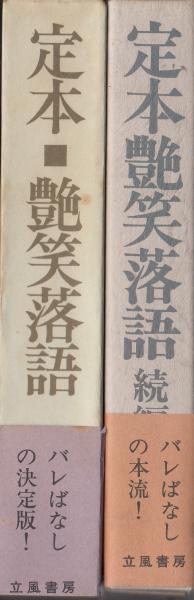 定本■艶笑落語
バレばなし
の決定版！
立風書房
定本艶笑落語 続編
バレばなし
の本流！
立風書房